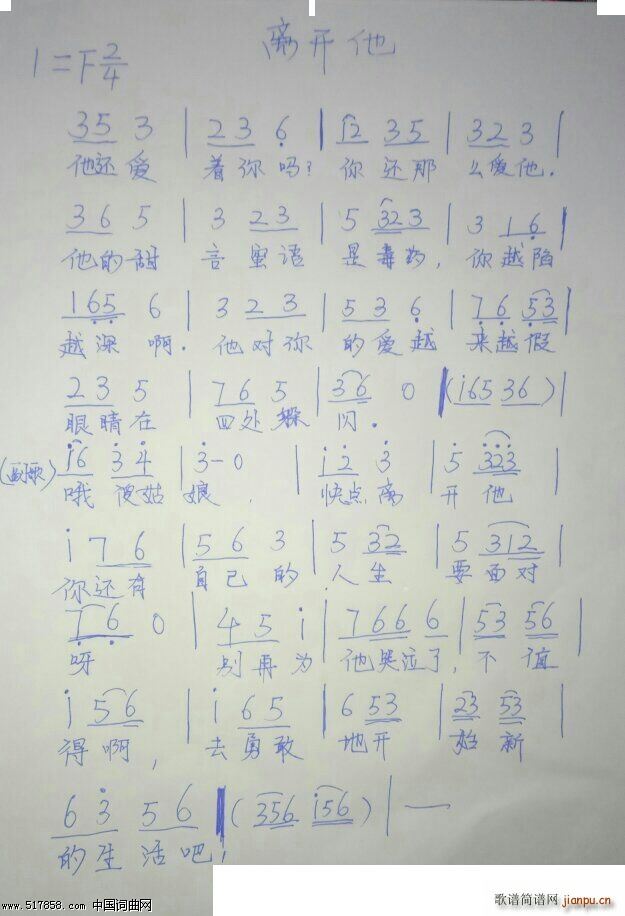 离开他
1=F 2/4
35 3 | 23 6 | 12 35 | 32 3 |
他还爱 着你吗? 你还那 么爱他.
36 5 | 3 23 | 5 323 | 3 16 |
他的甜 言蜜语 是毒药, 你越陷
165 6 | 3 23 | 53 6 | 76 53 |
越深啊. 他对你 的爱越 来越假
23 5 | 76 5 | 36 0 | (i65 36) |
眼睛在 四处躲 闪.
(副歌) i6 34 | 3-0 | i2 3 | 5 323 |
哦傻姑 娘, 快点离 开他
i 76 | 56 3 | 5 32 | 5 312 |
你还有 自己的 人生 要面对
76 0 | 45 i | 766 6 | 53 56 |
呀 别再为 他哭泣了, 不值
i 56 | i 65 | 6 53 | 23 53 |
得啊, 去勇敢 地开 始新
63 56 | (356 i56) | —
的生活吧,
www.517858.com 中国词曲网
歌谱简谱网 jianpu.cn